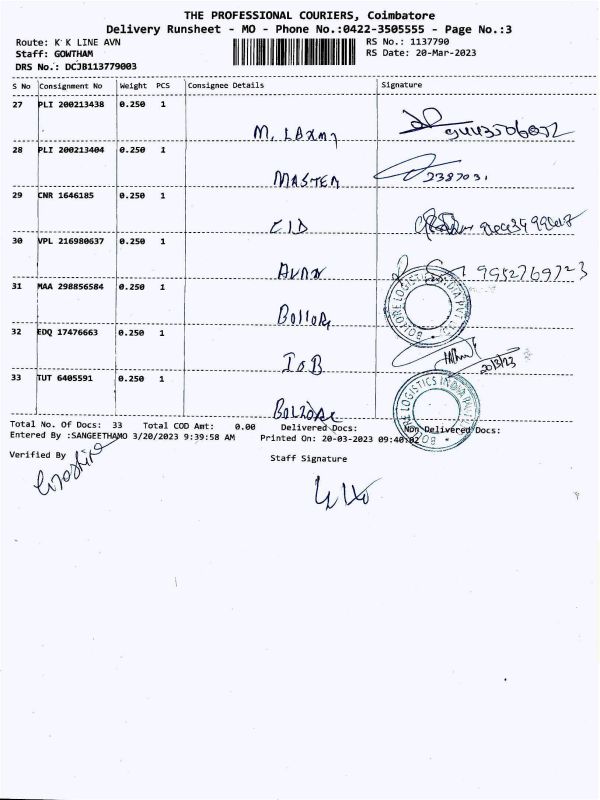 THE PROFESSIONAL COURIERS, Coimbatore
Delivery Runsheet - MO - Phone No.:0422-3505555 - Page No.:3
Route: K K LINE AVN
RS No.: 1137790
Staff: GOWTHAM
RS Date: 20-Mar-2023
DRS No.: DCJB113779003
S No Consignment No Weight PCS Consignee Details Signature
27 PLI 200213438 0.250 1
M. Laxmi
28 PLI 200213404 0.250 1
MASTER 2387031
29 CNR 1646185 0.250 1
CID
30 VPL 216980637 0.250 1
9952769723
31 MAA 298856584 0.250 1
BOLLORE LOGISTICS INDIA PVT. LTD.
32 EDQ 17476663 0.250 1
IOB 20/3/23
33 TUT 6405591 0.250 1
BOLLORE
BOLLORE LOGISTICS INDIA PVT
Total No. Of Docs: 33 Total COD Amt: 0.00 Delivered Docs: Non Delivered Docs:
Entered By :SANGEETHAMO 3/20/2023 9:39:58 AM Printed On: 20-03-2023 09:40:02
Verified By
Staff Signature